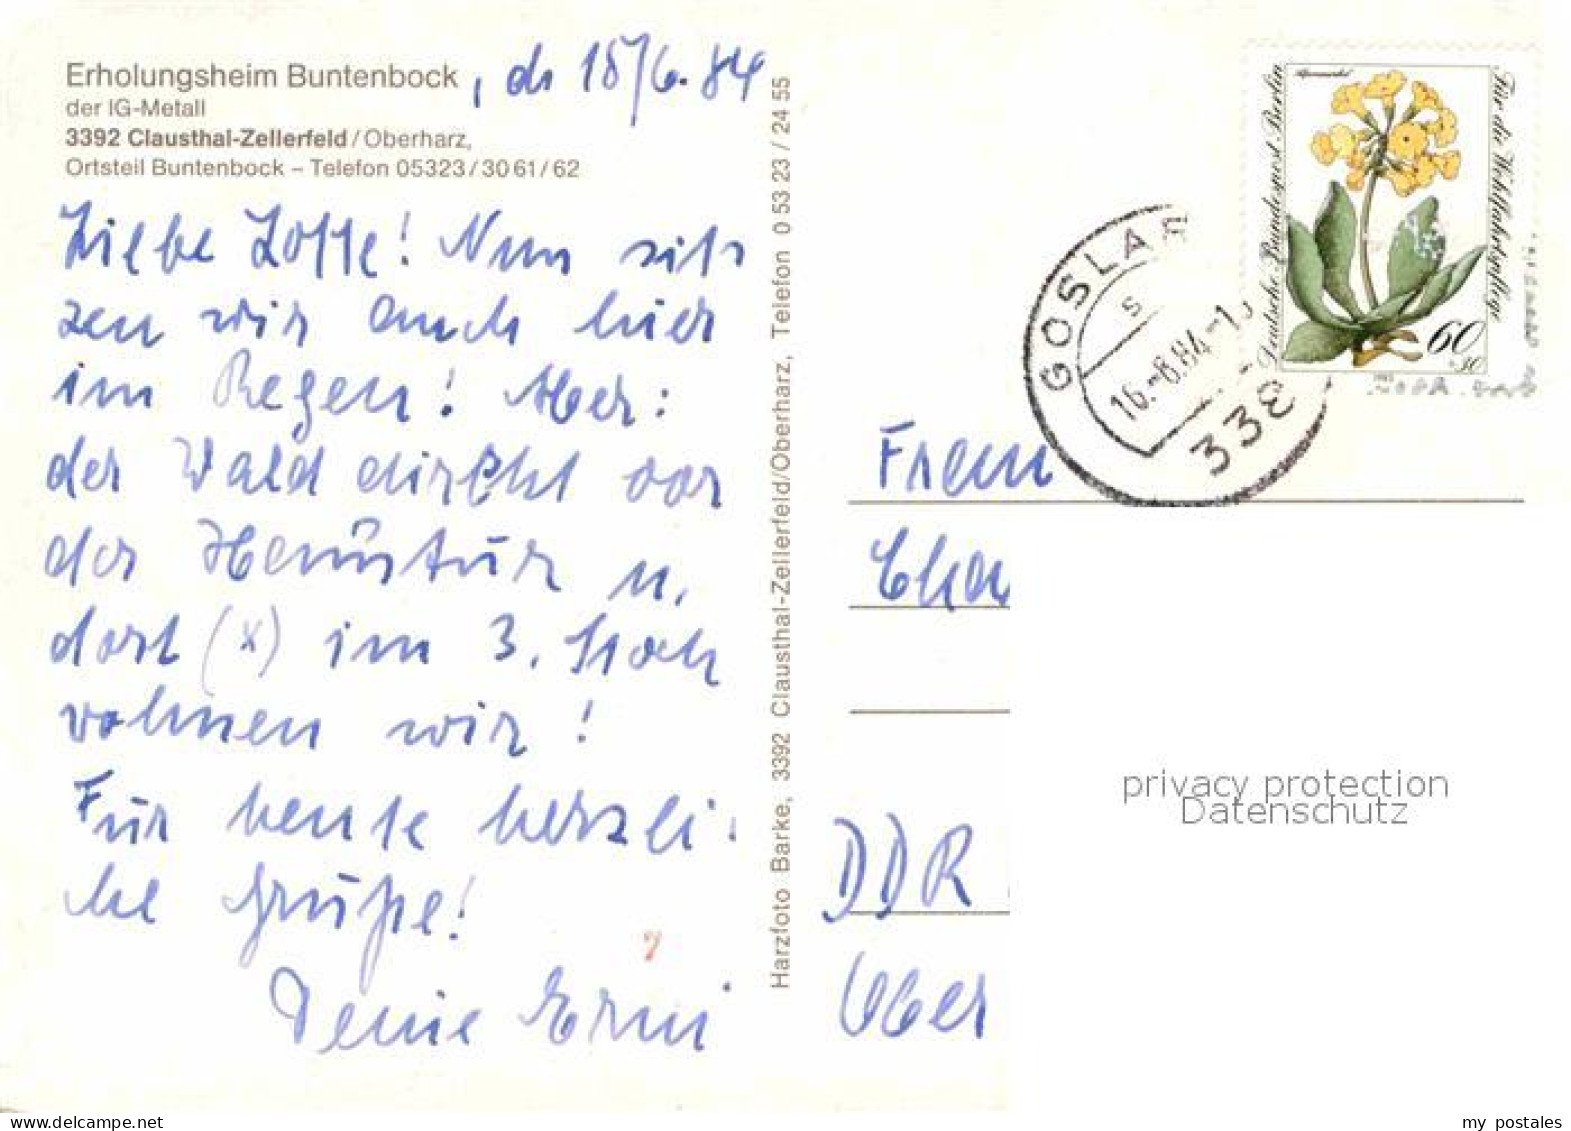 Erholungsheim Buntenbock, d. 15/6.84
der IG-Metall
3392 Clausthal-Zellerfeld/Oberharz,
Ortsteil Buntenbock – Telefon 05323/3061/62
Liebe Lotte! Nun sit
zen wir auch hier
im Regen! Aber:
der Wald direkt vor
der Haustür u.
dort (x) im 3. Stock
wohnen wir!
Für heute herzli-
che Grüße!
Deine Erni
Harzfoto Barke, 3392 Clausthal-Zellerfeld/Oberharz, Telefon 0 53 23 / 24 55
GOSLAR
16.-6.84-1
338
Deutsche Bundespost Berlin
Für die Wohlfahrtspflege
60
+30
Frau
DDR
privacy protection
Datenschutz
my postales